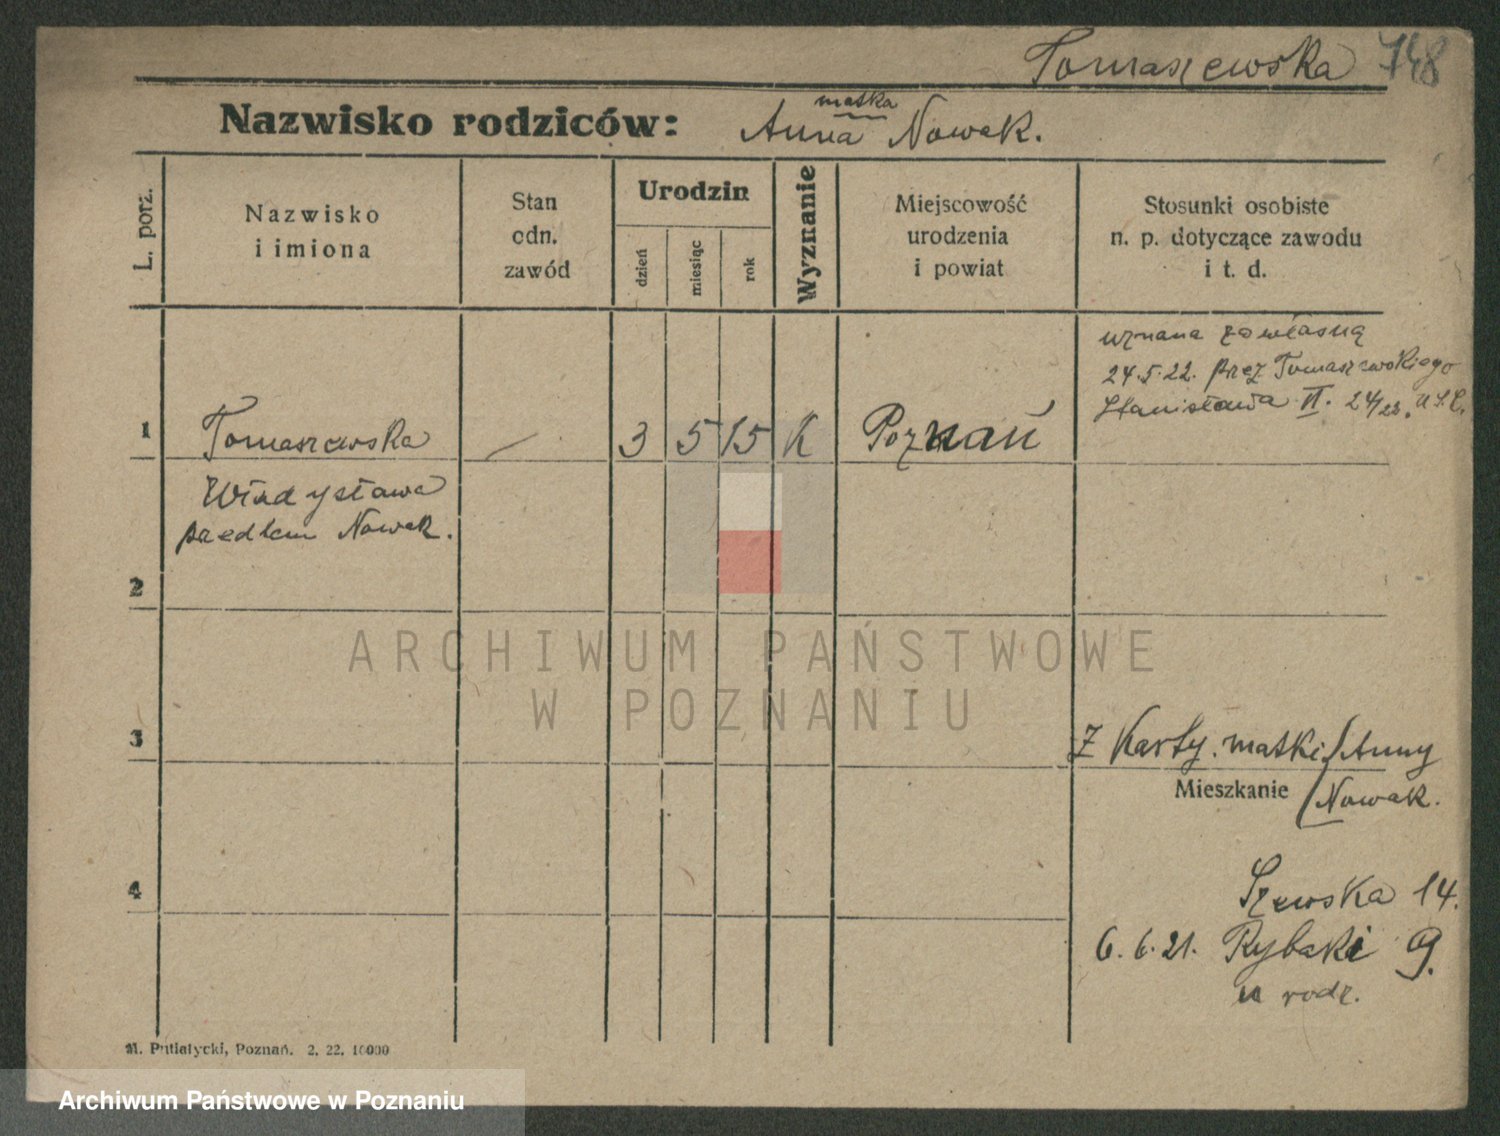 Tomaszewska 748
matka
Nazwisko rodziców: Anna Nowak.
L. porz.
Nazwisko
i imiona
Stan
odn.
zawód
Urodzin
dzień
miesiąc
rok
Wyznanie
Miejscowość
urodzenia
i powiat
Stosunki osobiste
n. p. dotyczące zawodu
i t. d.
uznana za własną
24.5.22. przez Tomaszewskiego
Stanisława VI. 24/22. U.S.C.
1 Tomaszewska 3 5 15 K Poznań
Władysława
przedtem Nowak.
2
ARCHIWUM PAŃSTWOWE
W POZNANIU
3
Z Karty. matki Anny
Mieszkanie Nowak.
4
Szewska 14.
6.6.21. Rybaki 9.
u rodz.
M. Putiatycki, Poznań. 2. 22. 10000
Archiwum Państwowe w Poznaniu